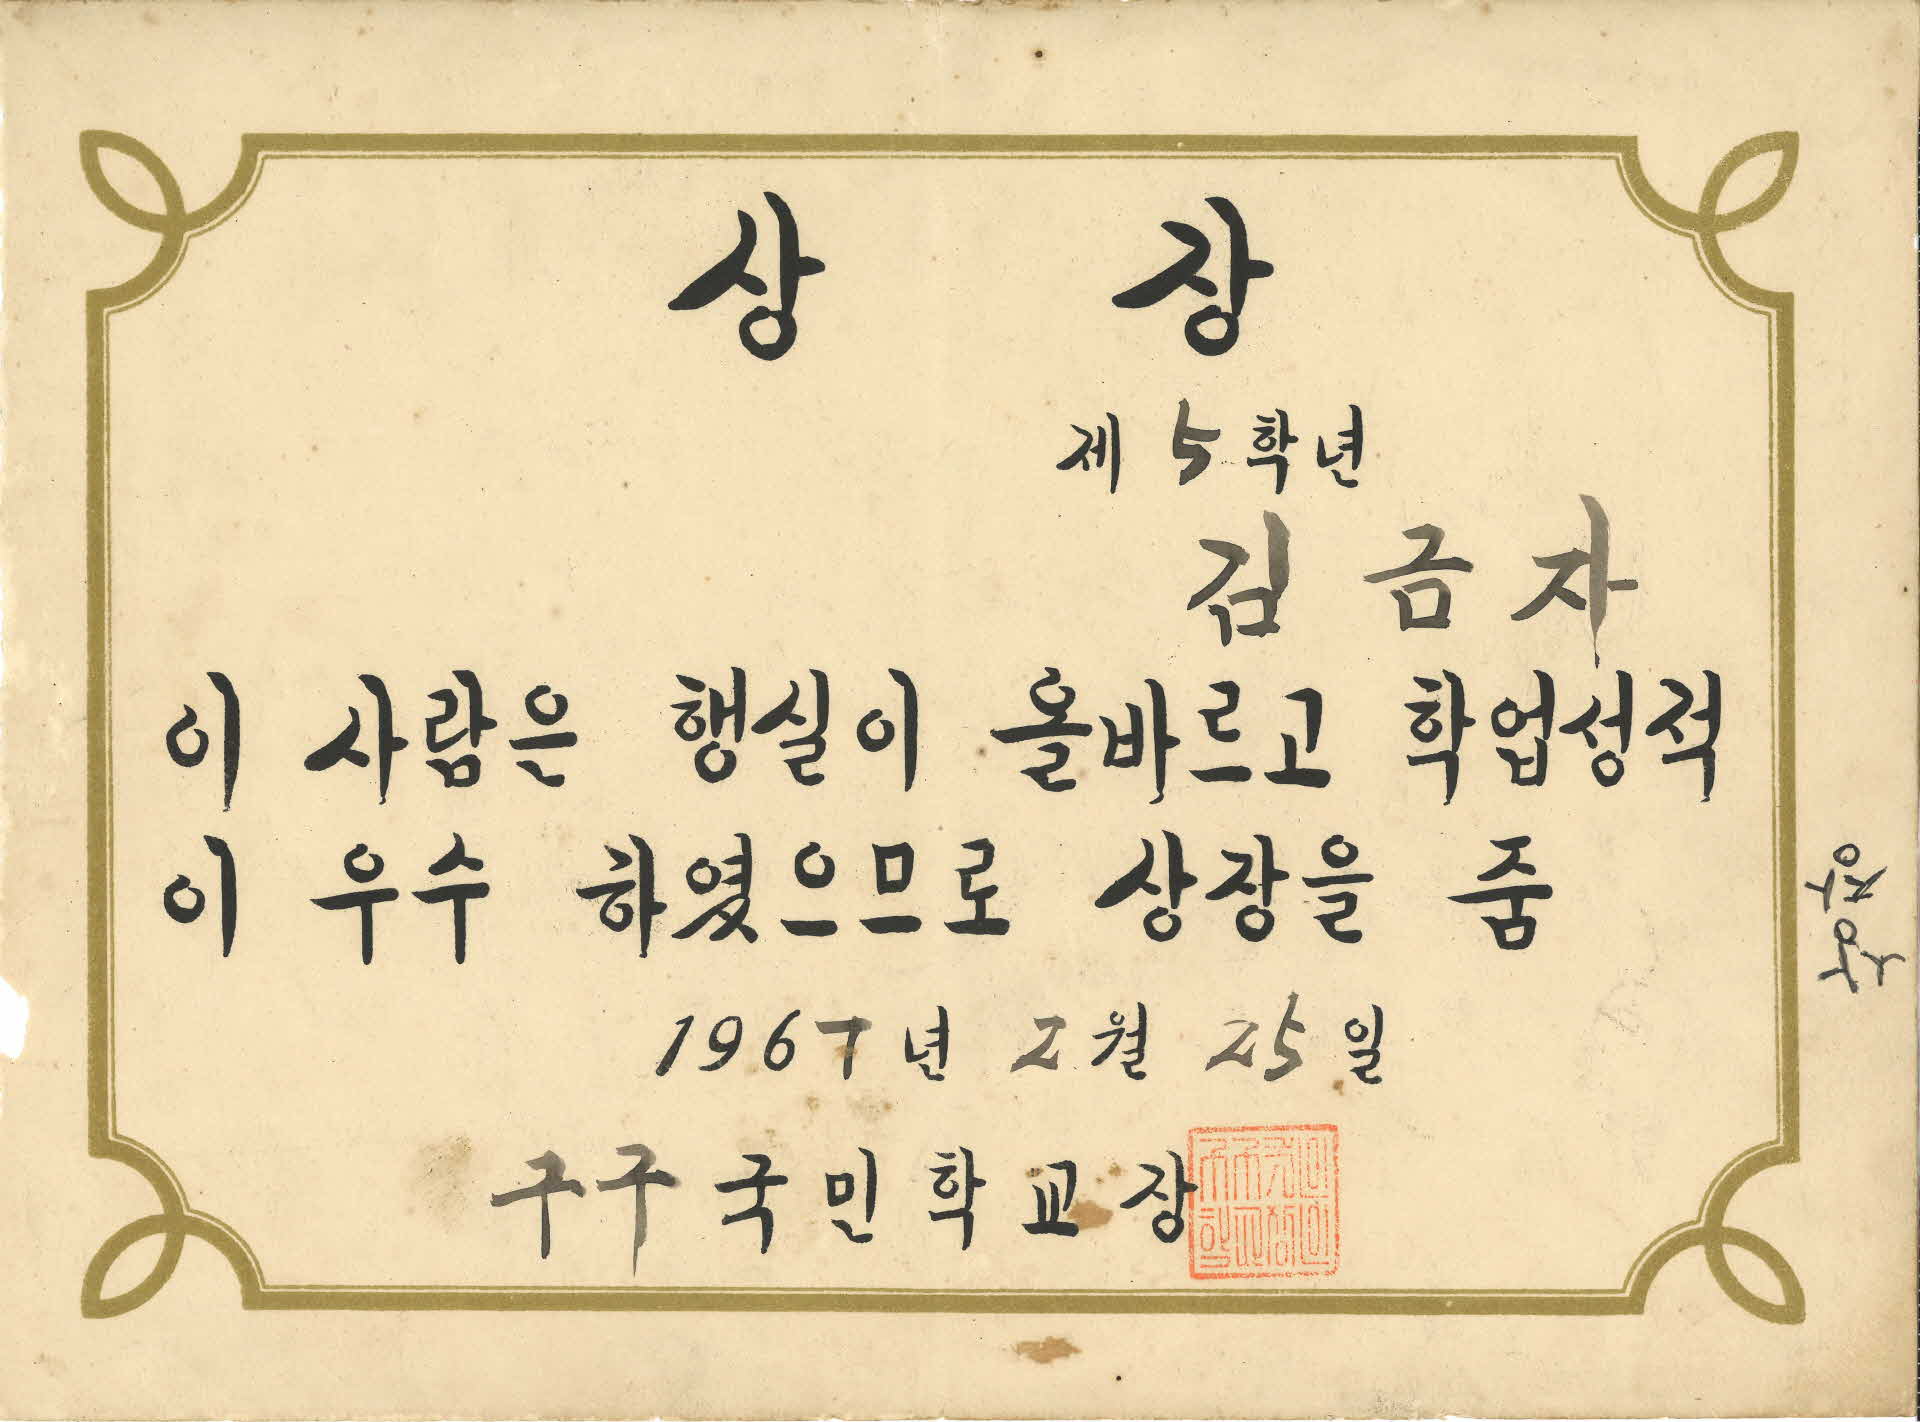 상 장
제 5 학년
김 금 자
이 사람은 행실이 올바르고 학업성적
이 우수 하였으므로 상장을 줌
1967년 2월 25일
구구국민학교장
상장